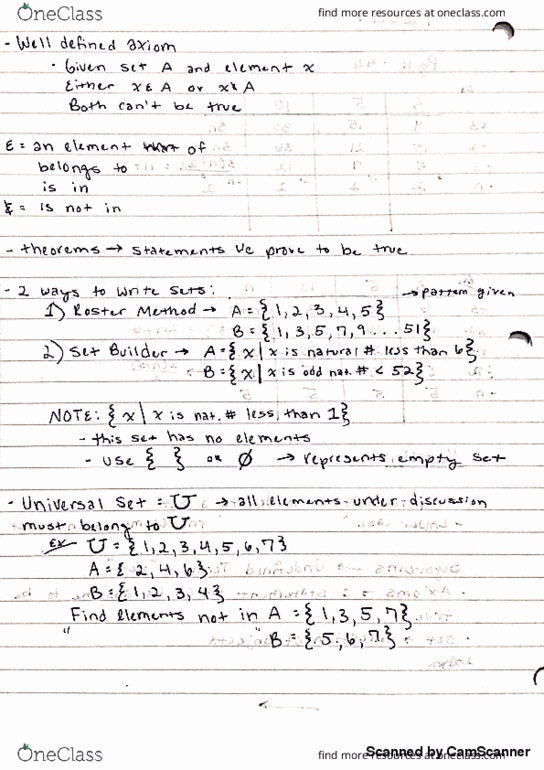 OneClass
find more resources at oneclass.com
- Well defined axiom
· Given set A and element x
Either x ∈ A or x ∉ A
Both can't be true
∈ = an element of
belongs to
is in
∉ = is not in
- theorems → statements we prove to be true
- 2 ways to write sets:
→ pattern given
1) Roster Method → A = { 1, 2, 3, 4, 5 }
B = { 1, 3, 5, 7, 9 . . . 51 }
2) Set Builder → A = { x | x is natural # less than 6 }
B = { x | x is odd nat. # < 52 }
NOTE: { x | x is nat. # less than 1 }
- this set has no elements
- use { } or ∅ → represents empty set
- Universal Set = U → all elements under discussion
must belong to U
Ex U = { 1, 2, 3, 4, 5, 6, 7 }
A = { 2, 4, 6 }
B = { 1, 2, 3, 4 }
Find elements not in A = { 1, 3, 5, 7 }
" B = { 5, 6, 7 }
OneClass
find more resources at oneclass.com
Scanned by CamScanner